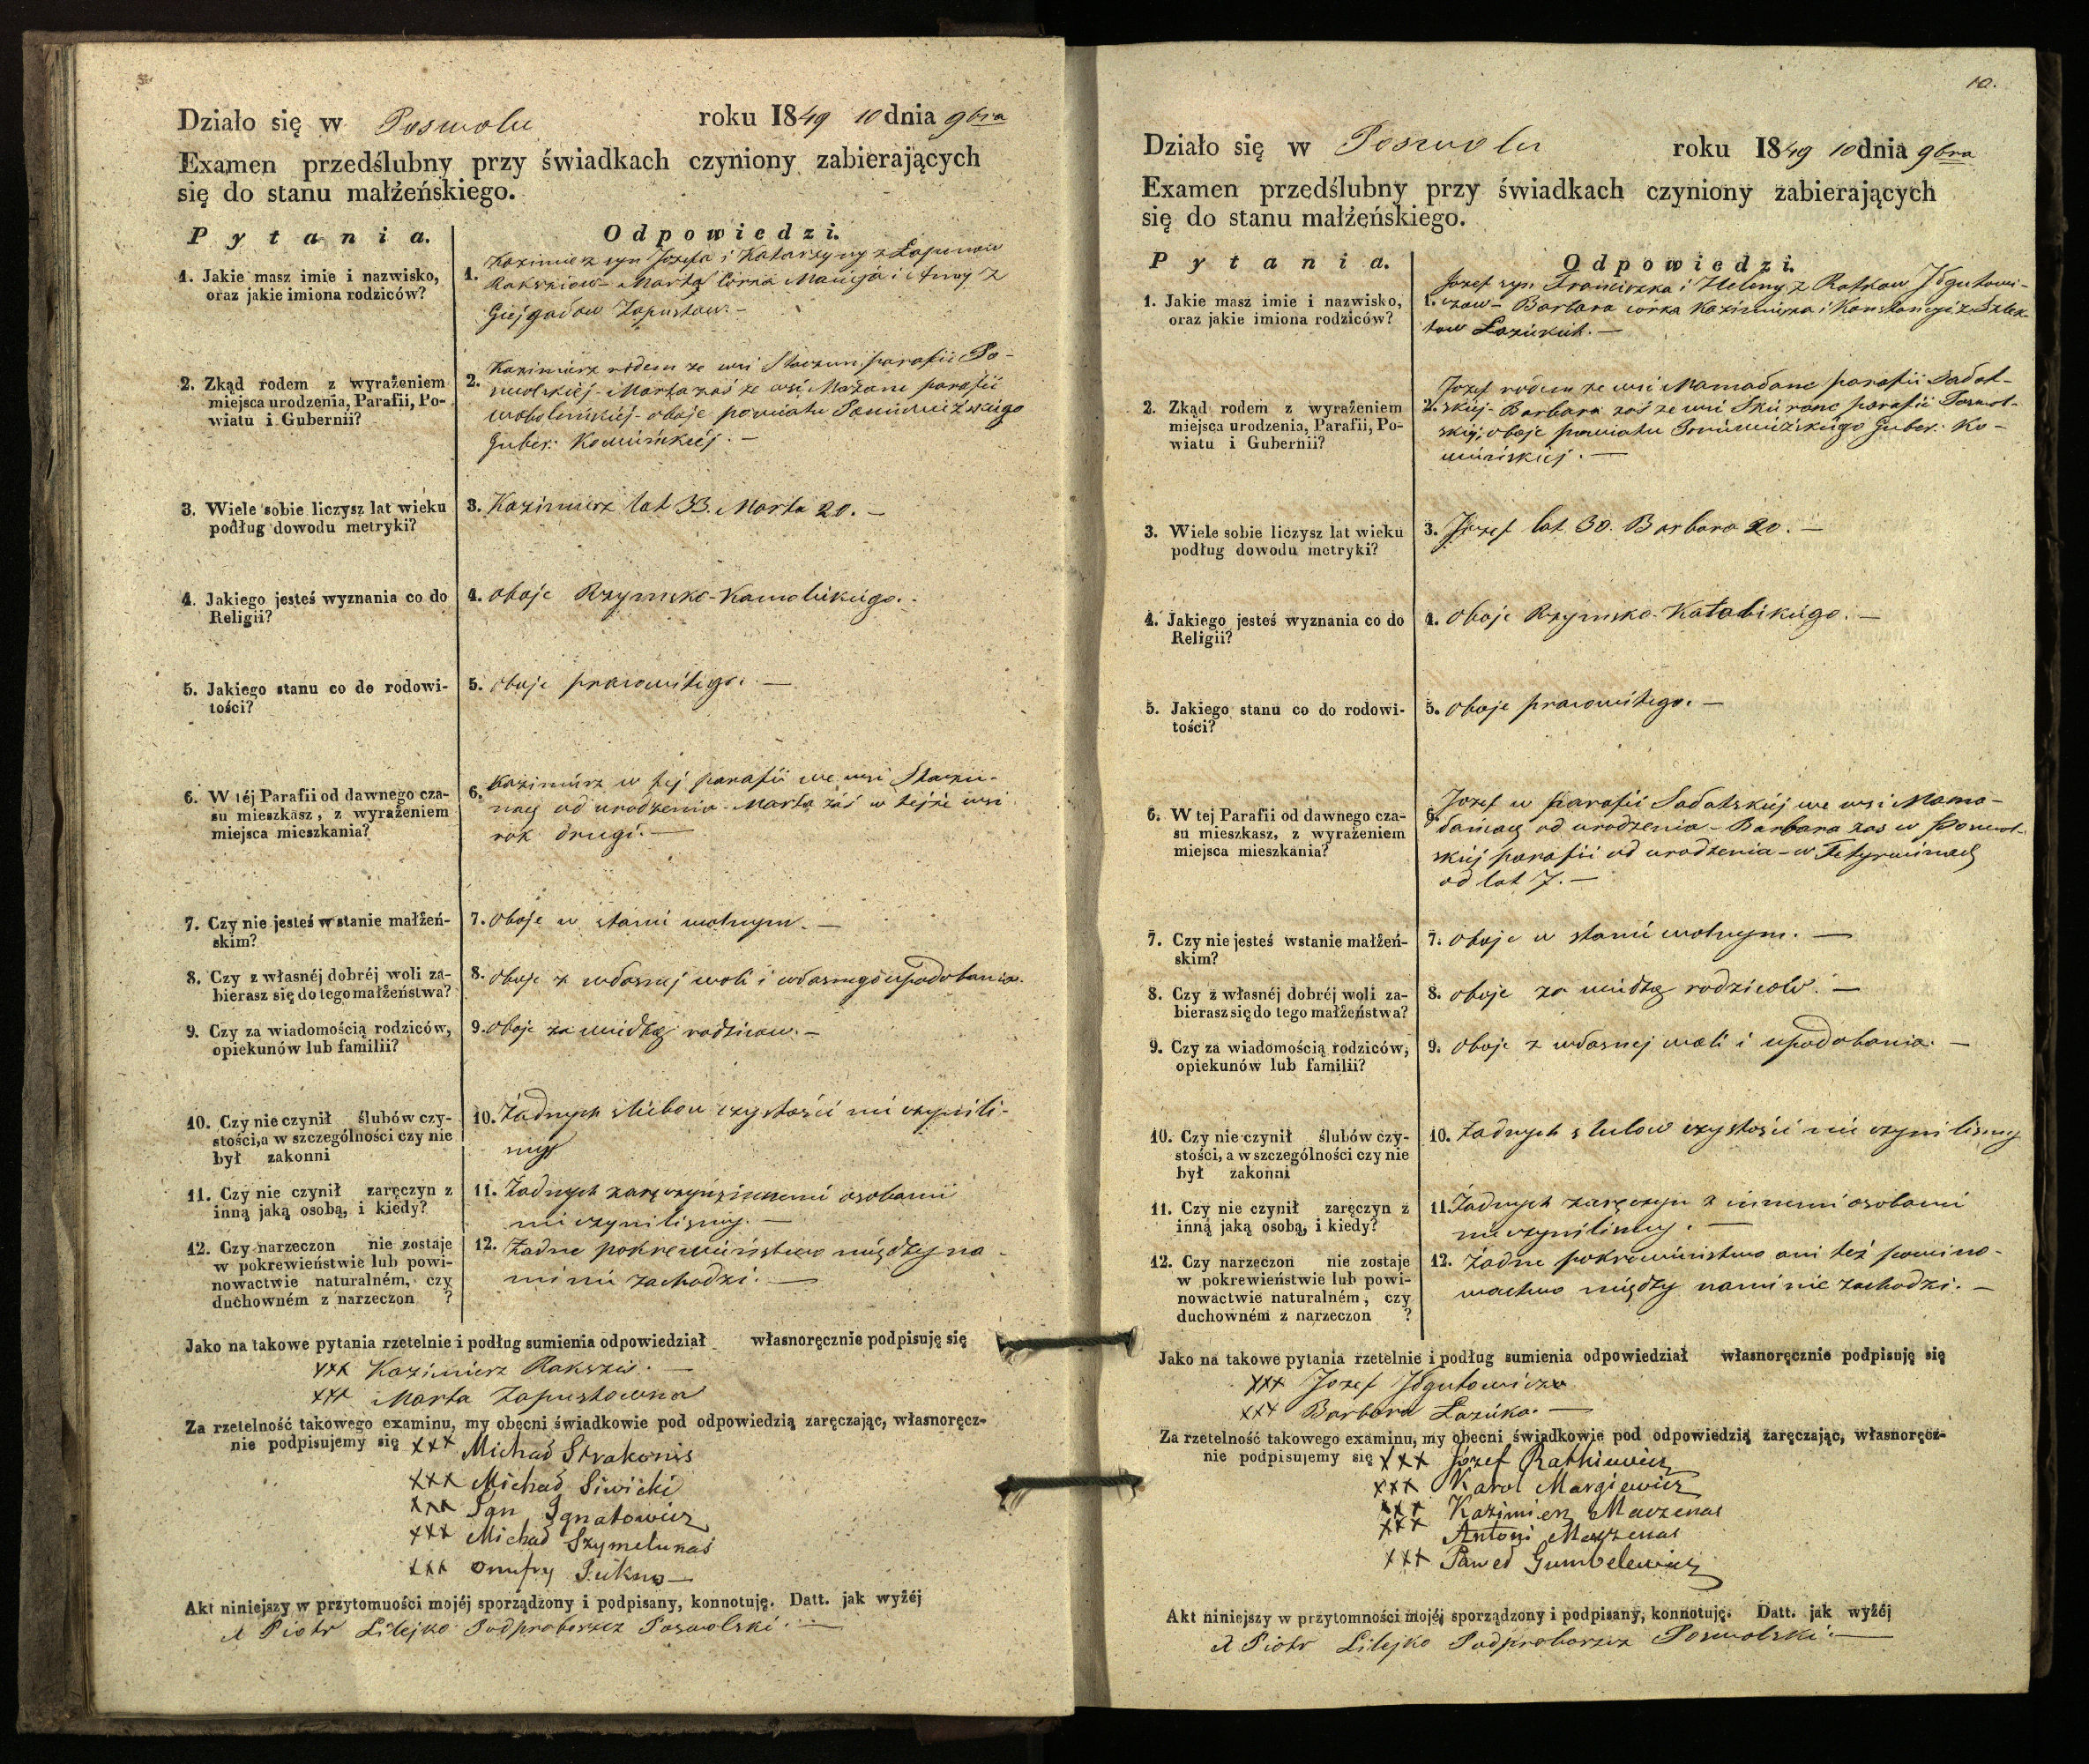 Działo się w Poswolu roku 1849 10 dnia 9bra
Examen przedślubny przy świadkach czyniony zabierających
się do stanu małżeńskiego.
Pytania. Odpowiedzi.
1. Jakie masz imie i nazwisko,
oraz jakie imiona rodziców?
1. Kazimierz syn Józefa i Katarzyny z Łapinow
Rakszkow - Marta córka Macieja i Anny z
Giejgadow Zapustow. -
2. Zkąd rodem z wyrażeniem
miejsca urodzenia, Parafii, Po-
wiatu i Gubernii?
2. Kazimierz rodem ze wsi parafii Po-
swolskiej - Marta zaś ze wsi Mażane parafii
wobolnikskiej - oboje powiatu Poniewieżskiego
Guber: Kowieńskiej. -
3. Wiele sobie liczysz lat wieku
podług dowodu metryki?
3. Kazimierz lat 33. Marta 20. -
4. Jakiego jesteś wyznania co do
Religii?
4. oboje Rzymsko-Katolickiego.
5. Jakiego stanu co do rodowi-
tości?
5. oboje prawowitego. -
6. W téj Parafii od dawnego cza-
su mieszkasz, z wyrażeniem
miejsca mieszkania?
6. Kazimierz w tej parafii we wsi
od urodzenia - Marta zaś w tejże wsi
rok drugi. -
7. Czy nie jesteś w stanie małżeń-
skim?
7. oboje w stanie wolnym. -
8. Czy z własnéj dobréj woli za-
bierasz się do tego małżeństwa?
8. oboje z własnej woli i własnego upodobania.
9. Czy za wiadomością rodziców,
opiekunów lub familii?
9. oboje za wiedzą rodzicow. -
10. Czy nie czynił ślubów czy-
stości, a w szczególności czy nie
był zakonni
10. Żadnych slubow czystości nie czynili-
my
11. Czy nie czynił zaręczyn z
inną jaką osobą, i kiédy?
11. Żadnych zaręczyn z innemi osobami
nie czynilismy. -
12. Czy narzeczon nie zostaje
w pokrewieństwie lub powi-
nowactwie naturalném, czy
duchowném z narzeczon ?
12. Żadne pokrewieństwo między na-
mi nie zachodzi. -
Jako na takowe pytania rzetelnie i podług sumienia odpowiedział własnoręcznie podpisuję się
xxx Kazimierz Rakszis. -
xxx Marta Zapustowna
Za rzetelność takowego examinu, my obecni świadkowie pod odpowiedzią zaręczając, własnoręcz-
nie podpisujemy się xxx Michał Strakonis
xxx Michał Siwicki
xxx Jan Ignatowicz
xxx Michał Szymelunas
xxx Onufry
Akt niniejszy w przytomności mojéj sporządzony i podpisany, konnotuję. Datt. jak wyżéj
X Piotr Lilejko Podproboszcz Poswolski. -
10.
Działo się w Poswolu roku 1849 10 dnia 9bra
Examen przedślubny przy świadkach czyniony zabierających
się do stanu małżeńskiego.
Pytania. Odpowiedzi.
1. Jakie masz imie i nazwisko,
oraz jakie imiona rodziców?
1. Jozef syn Franciszka i Heleny z Ratkow Jdgutowi-
czow - Barbara córka Kazimierza i Konstancyi z Szlek-
tow Łaziukut. -
2. Zkąd rodem z wyrażeniem
miejsca urodzenia, Parafii, Po-
wiatu i Gubernii?
2. Jozef rodem ze wsi Mamadane parafii Sadot-
skiej - Barbara zaś ze wsi Skirane parafii Poswol-
skiej, oboje powiatu Poniewieżskiego Guber: Ko-
wieńskiej. -
3. Wiele sobie liczysz lat wieku
podług dowodu metryki?
3. Jozef lat 30. Barbara 20. -
4. Jakiego jesteś wyznania co do
Religii?
4. oboje Rzymsko-Katolickiego. -
5. Jakiego stanu co do rodowi-
tości?
5. oboje prawowitego. -
6. W tej Parafii od dawnego cza-
su mieszkasz, z wyrażeniem
miejsca mieszkania?
6. Jozef w parafii Sadotskiej we wsi Mama-
danach od urodzenia - Barbara zas w Poswol-
skiej parafii od urodzenia - w
od lat 7. -
7. Czy nie jesteś wstanie małżeń-
skim?
7. oboje w stanie wolnym. -
8. Czy z własnéj dobréj woli za-
bierasz się do tego małżeństwa?
8. oboje za wiedzą rodzicow. -
9. Czy za wiadomością rodziców,
opiekunów lub familii?
9. oboje z własnej woli i upodobania. -
10. Czy nie czynił ślubów czy-
stości, a w szczególności czy nie
był zakonni
10. Żadnych slubow czystości nie czynilismy
11. Czy nie czynił zaręczyn z
inną jaką osobą, i kiedy?
11. Żadnych zaręczyn z innemi osobami
nie czynilismy. -
12. Czy narzeczon nie zostaje
w pokrewieństwie lub powi-
nowactwie naturalném, czy
duchowném z narzeczon ?
12. Żadne pokrewieństwo ani też powino-
wactwo między nami nie zachodzi. -
Jako na takowe pytania rzetelnie i podług sumienia odpowiedział własnoręcznie podpisuję się
xxx Jozef Jdgutowicz
xxx Barbara Łaziuka. -
Za rzetelność takowego examinu, my obecni świadkowie pod odpowiedzią zaręczając, własnoręcz-
nie podpisujemy się xxx Józef Rathiewicz
xxx Karol Margiewicz
xxx Kazimierz Maczenas
xxx Antoni Maczenas
xxx Paweł Gumbelewicz
Akt niniejszy w przytomności mojéj sporządzony i podpisany, konnotuję. Datt. jak wyżéj
X Piotr Lilejko Podproboszcz Poswolski. -